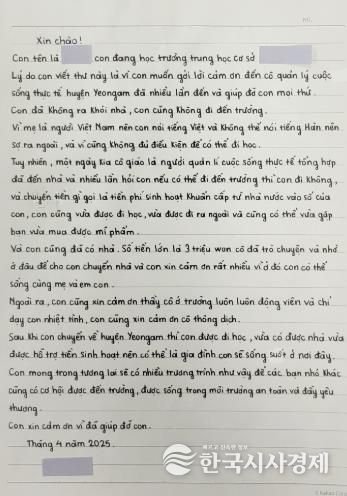 Xin chào!
Con tên là con đang học trường trung học cơ sở
Lý do con viết thư này là vì con muốn gởi lời cảm ơn đến cô quản lý cuộc
sống thực tế huyện Yeongam đã nhiều lần đến và giúp đỡ con mọi thứ.
Con đã không ra khỏi nhà, con cũng không đi đến trường.
Vì mẹ là người Việt Nam nên con nói tiếng Việt và không thể nói tiếng Hàn nên
sợ ra ngoài, và vì cũng không đủ điều kiện để có thể đi học.
Tuy nhiên, một ngày kia cô giáo là người quản lí cuộc sống thực tế tổng hợp
đã đến nhà và nhiều lần hỏi con nếu có thể đi đến trường thì con đi không,
và chuyển tiền gì gọi là tiền phí sinh hoạt khẩn cấp từ nhà nước vào sổ của
con, con cũng vừa được đi học, vừa được đi ra ngoài và cũng có thể vừa gặp
bạn vừa mua được mĩ phẩm.
Và con cũng đã có nhà. Số tiền lớn là 3 triệu won cô đã trò chuyện và nhờ
ở đâu để cho con chuyển nhà và con xin cảm ơn rất nhiều vì ở đó con có thể
sống cùng mẹ và em con.
Ngoài ra, con cũng xin cảm ơn thầy cô ở trường luôn luôn động viên và chỉ
dạy con nhiệt tình, con cũng xin cảm ơn cô thông dịch.
Sau khi con chuyển về huyện Yeongam thì con được đi học, vừa có được nhà vừa
được hỗ trợ tiền sinh hoạt nên có thể là gia đình con sẽ sống suốt ở nơi đây.
Con mong trong tương lai sẽ có nhiều trương trình như vậy để các bạn nhỏ khác
cũng có cơ hội được đến trường, được sống trong môi trường an toàn và đầy yêu
thương.
Con xin cảm ơn vì đã giúp đỡ con.
Tháng 4 năm 2025.
한국시사경제